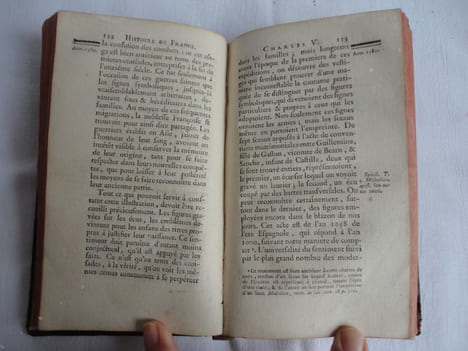 112 HISTOIRE DE FRANCE,
Ann. 1380.
la confusion des combats : car cet usa-
ge est bien antérieur au tems des pre-
mieres croisades, entreprises à la fin du
onzième siécle. Ce fut seulement à
l'occasion de ces guerres saintes que
les signes symboliques, jusques-là
vraisemblablement arbitraires, de-
vinrent fixes & héréditaires dans les
familles. Au moyen de ces fréquentes
migrations, la noblesse Françoise se
trouvoit pour ainsi dire partagée. Les
branches établies en Asie, jalouses de
l'honneur de leur sang, avoient un
intérêt visible à conserver la mémoire
de leur origine, tant pour se faire
respecter dans leurs nouvelles conquê-
tes, que pour laisser à leur postérité
les moyens de se faire reconnoître dans
leur ancienne patrie.
Tout ce qui pouvoit servir à consta-
ter cette illustration, devoit être re-
cueilli précieusement. Les figures gra-
vées sur les écus, les emblêmes de-
vinrent pour les enfans des titres pro-
pres à justifier leur naissance. Ce sen-
timent doit paroître d'autant moins
chimérique, qu'il est appuyé par les
faits. Ce n'est qu'au tems des croi-
sades, à la vérité, qu'on voit les mê-
mes cottes commencer à se perpétuer
CHARLES V. 113
Ann. 1380.
dans les familles ; mais longtems
avant l'époque de la premiere de ces
expéditions, on découvre des vesti-
ges qui semblent prouver d'une ma-
niere incontestable la coutume prati-
quée de se distinguer par des figures
symboliques, qui devenoient des signes
particuliers & propres à ceux qui les
avoient choisis. Non seulement ces signes
ornoient les armes ; mais les sceaux
même en portoient l'empreinte. Du
sept sceaux apposés à l'acte de conven-
tions matrimoniales entre Guillemine,
fille de Gaston, vicomte de Béarn, &
Sanche, infant de Castille, deux qui
se sont conservés, représentoient,
le premier, un écu sur lequel on voyoit
gravé un lévrier ; le second, un écu
coupé par des barres transversales. On
peut reconnoître certainement, sur-
tout dans le dernier, des figures em-
ployées encore dans le blazon de nos
jours. Cet acte est de l'an 1038 de
l'ère Espagnole, qui répond à l'an
1000, suivant notre maniere de comp-
ter *. L'universalité du sentiment suivi
par le plus grand nombre des moder-
* Ce monument est bien antérieur